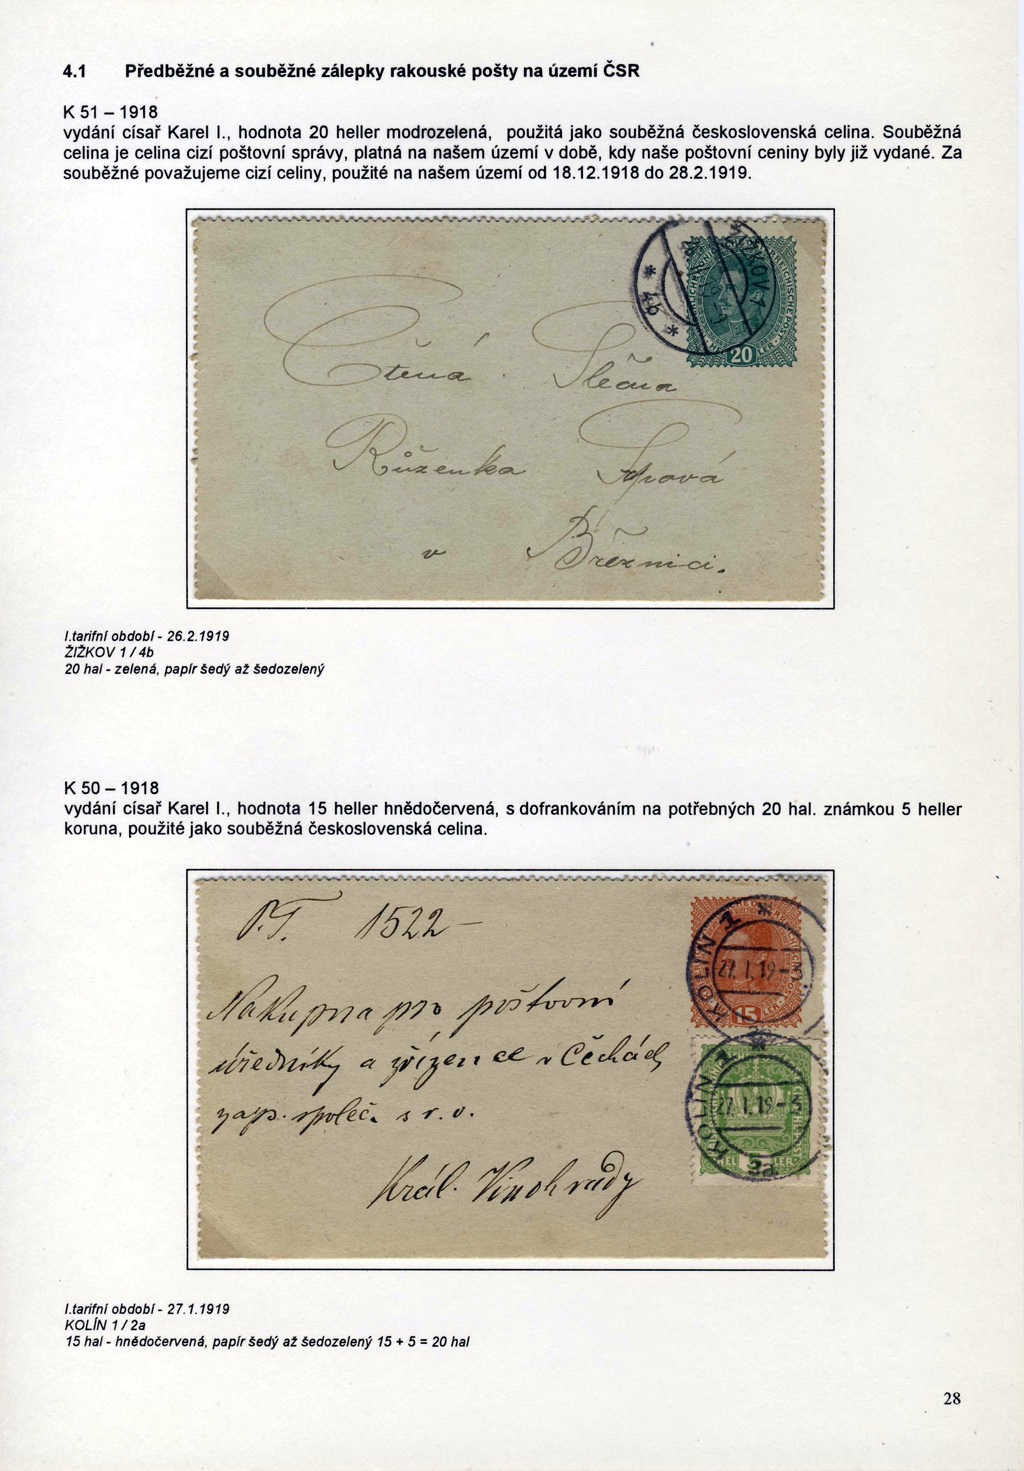 4.1 Předběžné a souběžné zálepky rakouské pošty na území ČSR
K 51 – 1918
vydání císař Karel I., hodnota 20 heller modrozelená, použitá jako souběžná československá celina. Souběžná
celina je celina cizí poštovní správy, platná na našem území v době, kdy naše poštovní ceniny byly již vydané. Za
souběžné považujeme cizí celiny, použité na našem území od 18.12.1918 do 28.2.1919.
ŽIŽKOV 1
* 4b *
20
Ctěná Slečna
Růženka
v Březnici.
I.tarifní období - 26.2.1919
ŽIŽKOV 1 / 4b
20 hal - zelená, papír šedý až šedozelený
K 50 – 1918
vydání císař Karel I., hodnota 15 heller hnědočervená, s dofrankováním na potřebných 20 hal. známkou 5 heller
koruna, použité jako souběžná československá celina.
P.T. 1522 –
KOLIN 1 *
27.I.19-3
15
Nákupna pro poštovní
úředníky a zřízence v Čechách
zaps. společ. s r. o.
Král. Vinohrady
KOLIN 1 *
27.I.19-3
2a
I.tarifní období - 27.1.1919
KOLÍN 1 / 2a
15 hal - hnědočervená, papír šedý až šedozelený 15 + 5 = 20 hal
28